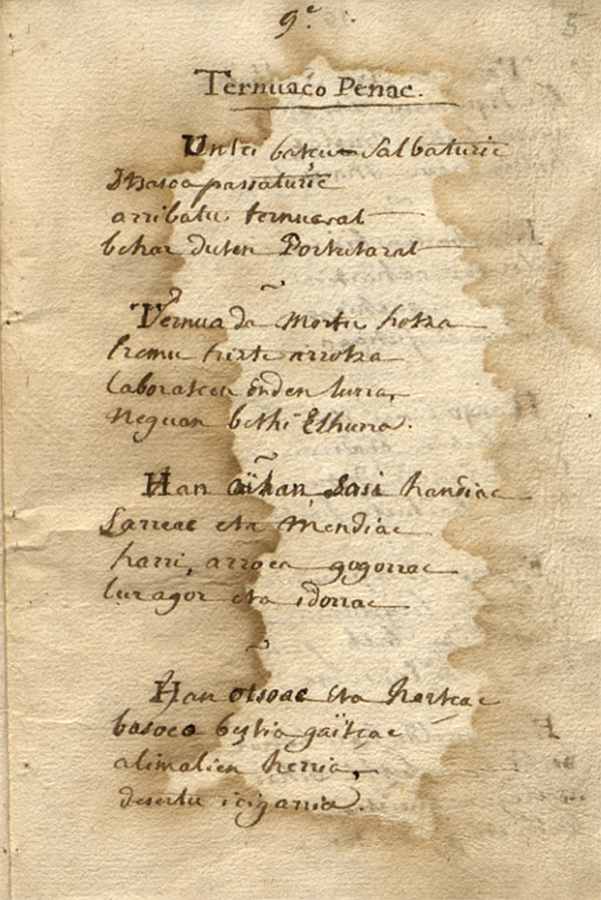 9.e
5
Ternuaco Penac.
Untci batcu Salbaturic
Itsasoa passaturic
arribatu ternuarat
behar duten Portutarat
Ternua da Mortu hotza
Eremu triste arrotza
Laboratcen Enden lurra,
Neguan bethi Elhurra.
Han oihan, Sasi handiac
Larreac eta Mendiac
harri, arroca gogorrac
lur agor eta idorrac
Han otsoac Eta hartcac
basoco bestia gaïtcac
alimalien herria,
desertu icigarria.